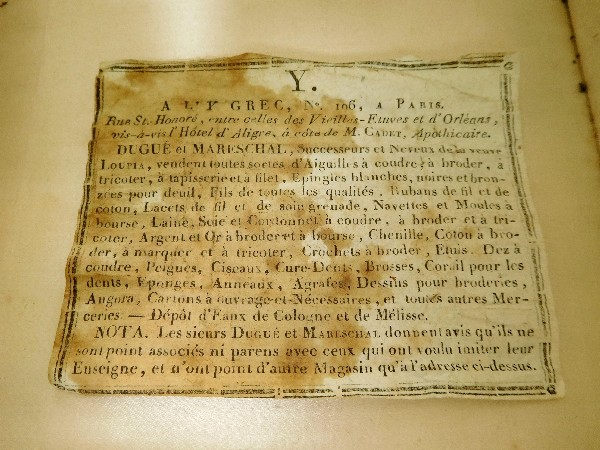 Y.
A L'Y GREC, No. 106, A PARIS.
Rue St. Honoré, entre celles des Vieilles-Etuves et d'Orléans,
vis-à-vis l'Hôtel d'Aligre, à côté de M. CADET, Apothicaire.
DUGUÉ et MARESCHAL, Successeurs et Neveux de la veuve
LOUPIA, vendent toutes sortes d'Aiguilles à coudre, à broder, à
tricoter, à tapisserie et à filet, Epingles blanches, noires et bron-
zées pour deuil, Fils de toutes les qualités, Rubans de fil et de
coton, Lacets de fil et de soie grenade, Navettes et Moules à
bourse, Laine, Soie et Cordonnet à coudre, à broder et à tri-
coter, Argent et Or à broder et à bourse, Chenille, Coton à bro-
der, à marquer et à tricoter, Crochets à broder, Etuis, Dez à
coudre, Peignes, Ciseaux, Cure-Dents, Brosses, Corail pour les
dents, Eponges, Anneaux, Agrafes, Dessins pour broderies,
Angora, Cartons à ouvrage et Nécessaires, et toutes autres Mer-
ceries. — Dépôt d'Eaux de Cologne et de Mélisse.
NOTA. Les sieurs DUGUÉ et MARESCHAL donnent avis qu'ils ne
sont point associés ni parens avec ceux qui ont voulu imiter leur
Enseigne, et n'ont point d'autre Magasin qu'à l'adresse ci-dessus.